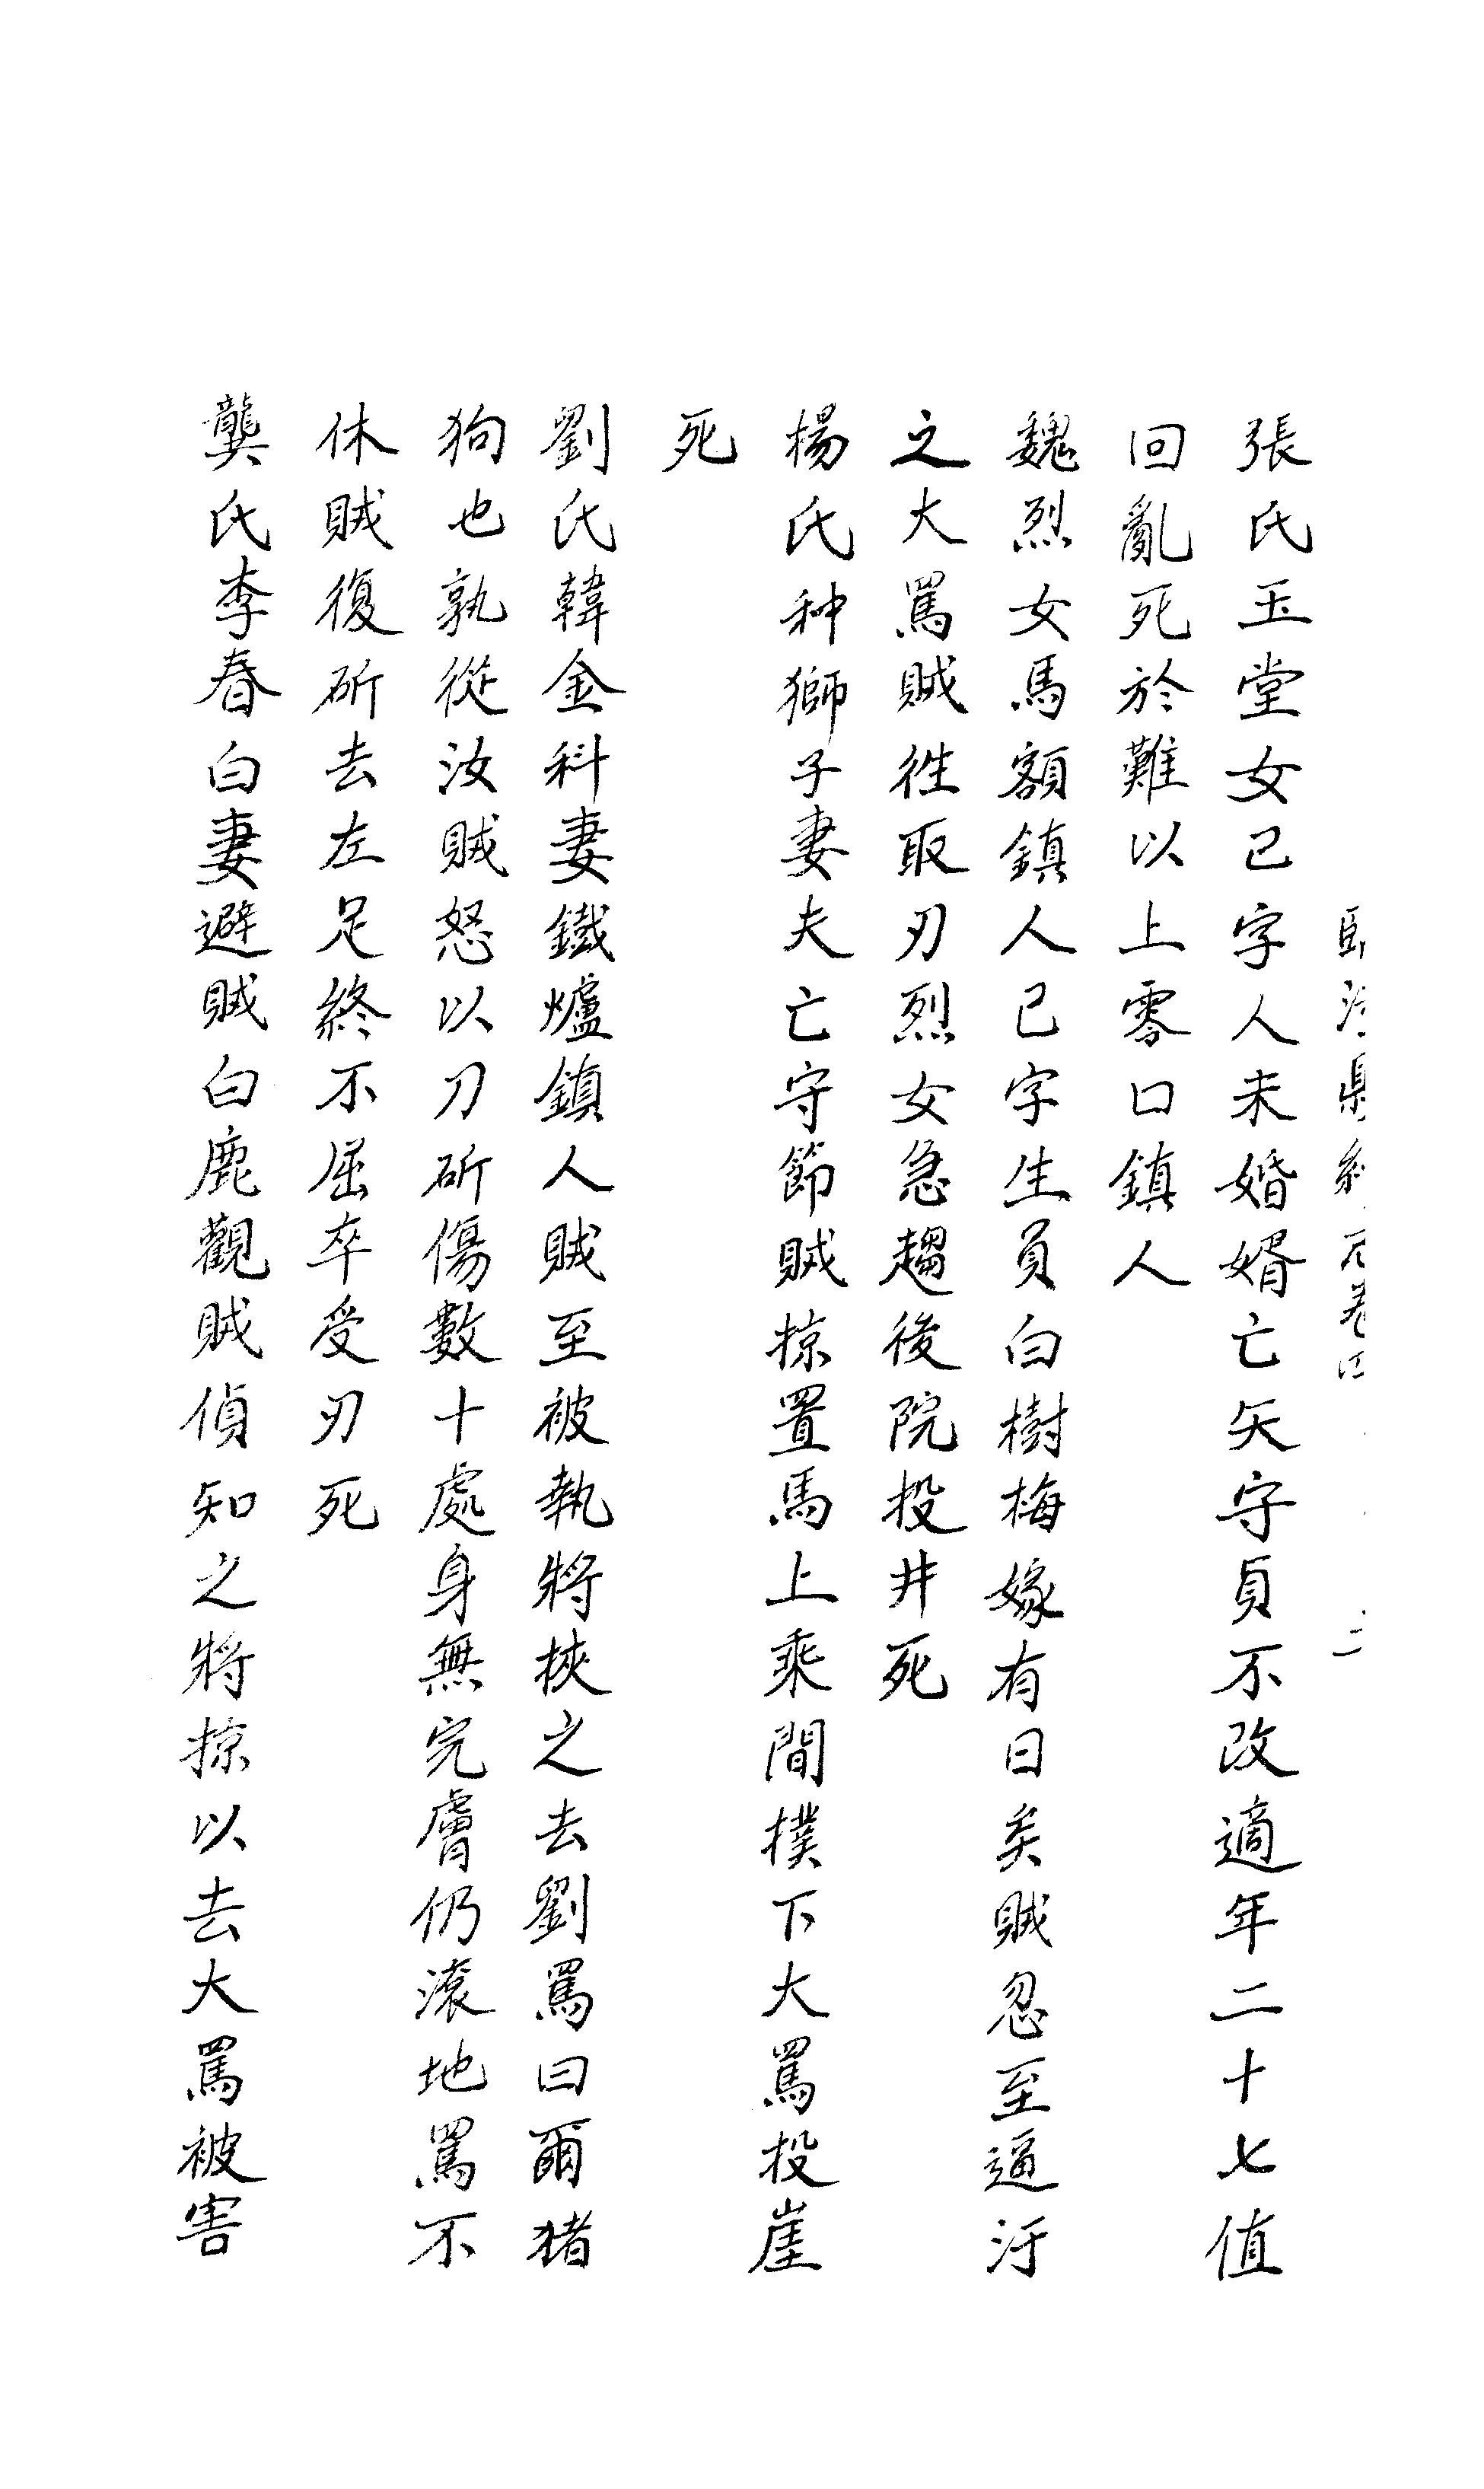 張氏玉堂女已字人未婚婿亡矢守貞不改適年二十七值
回亂死於難以上零口鎮人
魏烈女馬額鎮人已字生員白樹梅嫁有日矣賊忽至逼汙
之大罵賊徃取刃烈女急趨後院投井死
楊氏种獅子妻夫亡守節賊掠置馬上乘間撲下大罵投崖
死
劉氏韓金科妻鐵爐鎮人賊至被執將挾之去劉罵曰爾猪
狗也孰從汝賊怒以刀斫傷數十處身無完膚仍滾地罵不
休賊復斫去左足終不屈卒受刃死
龔氏李春白妻避賊白鹿觀賊偵知之將掠以去大罵被害